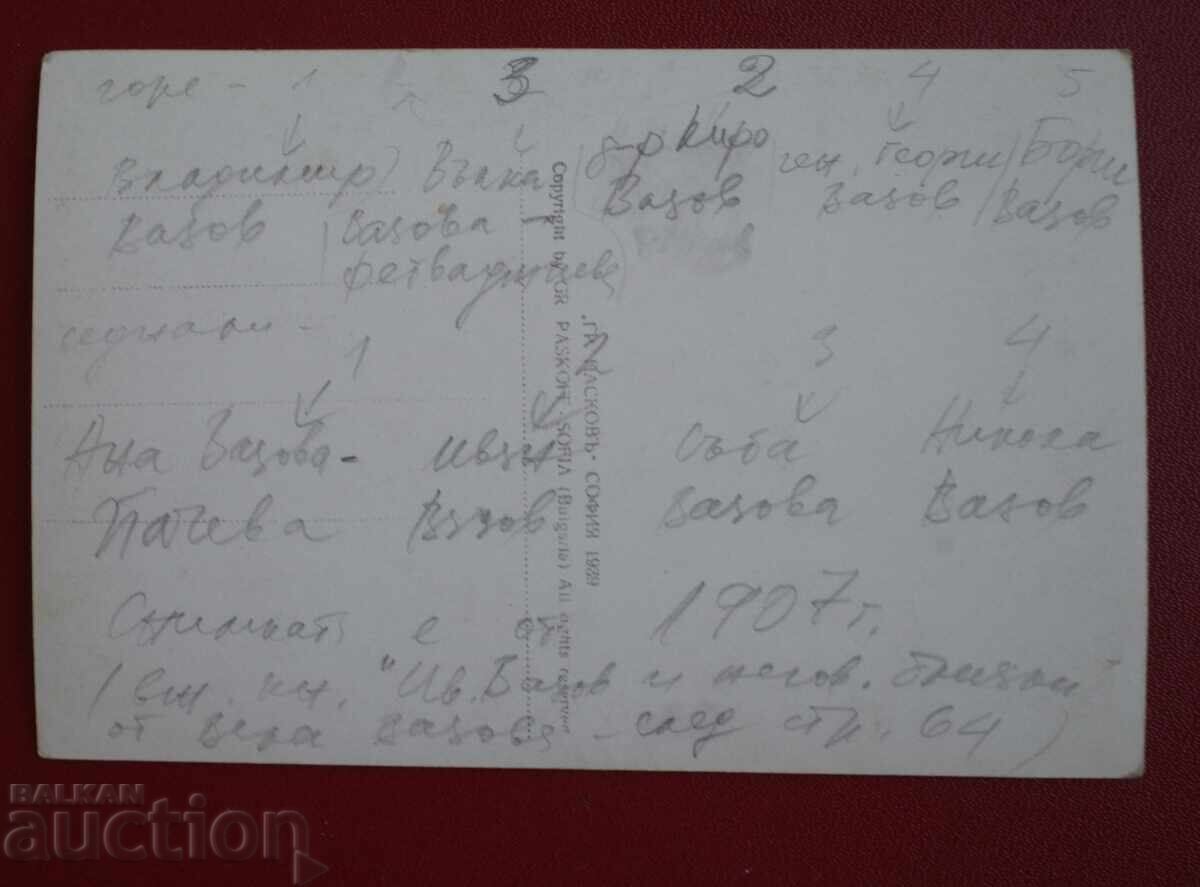 горе - 1 3 2 4 5
Владимир Вълка д-р Киро ген. Георги Борис
Вазов Вазова - Вазов Вазов Вазов
Фетваджиева
седнали -
1 2 3 4
Ана Вазова - Иван Съба Никола
Пачева Вазов Вазова Вазов
Снимката е от 1907 г.
(вж. кн. "Ив. Вазов и негов. близки"
от Вера Вазова - след стр. 64)
Copyright by GR PASKOFF - SOFIA (Bulgarie) All rights reserved
„ГР. ПАСКОВЪ“ - СОФИЯ 1939
BALKAN
auction